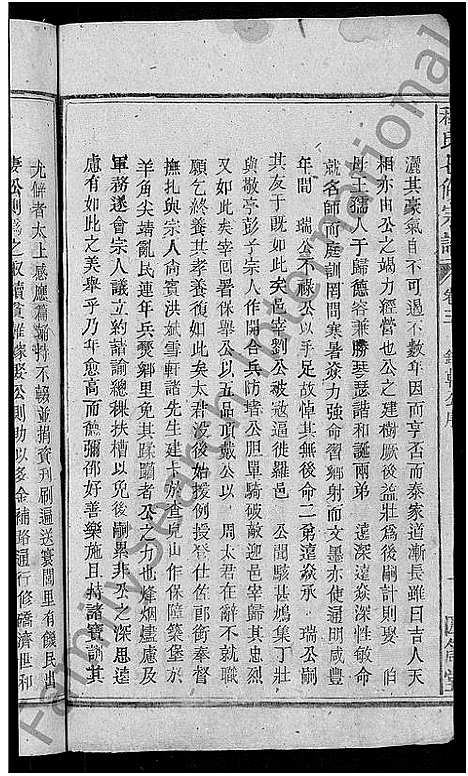 程氏七修宗譜
卷三
灑其豪氣自不可過不數年因而亨否而泰家道漸長雖曰吉人天
相亦由公之竭力經營也公之建樹厥後益壯爲後嗣計則娶 伯
母王孺人于歸德容兼勝琴瑟諧和誕兩弟 遠深遠焱深性敏命
就名師而庭訓罔間寒暑焱力強命習鄉射而文墨亦使通明咸豐
年間 瑞公不祿公以手足故悼其無後命二弟遠焱承 瑞公嗣
其友于既如此矣邑宰劉公被逼徙羅邑 公聞駭甚鳩集丁壯
與敬亭彭子宗人作開各兵防堵公胆單騎破敵迎宰歸其忠
又如此厥後宰回署保舉公以五品頂戴公以 周太君在不敢
願乞終養其孝養復如此矣太君後始援例授
撫扎與宗人俞賓洪斌雪軒諸先生建卡於查兒山作保障築堡於
羊角尖靖亂民連年兵燹鄉里免其蹂躪者公之力也烽烟
軍務遂會宗人議立約諧諭總棟扶槽以免後嗣累非公之深思遠
慮有如此之美舉乎乃年愈高而館彌邵好善樂施且持諸寶訓其
尤俻者太上感應篇誦持不輟並捐資刊刷遍送寰闤里有饑民出
妻公則爲之收贖貧難嫁娶公則助以多金補路通行修橋濟世和
Familysearch International